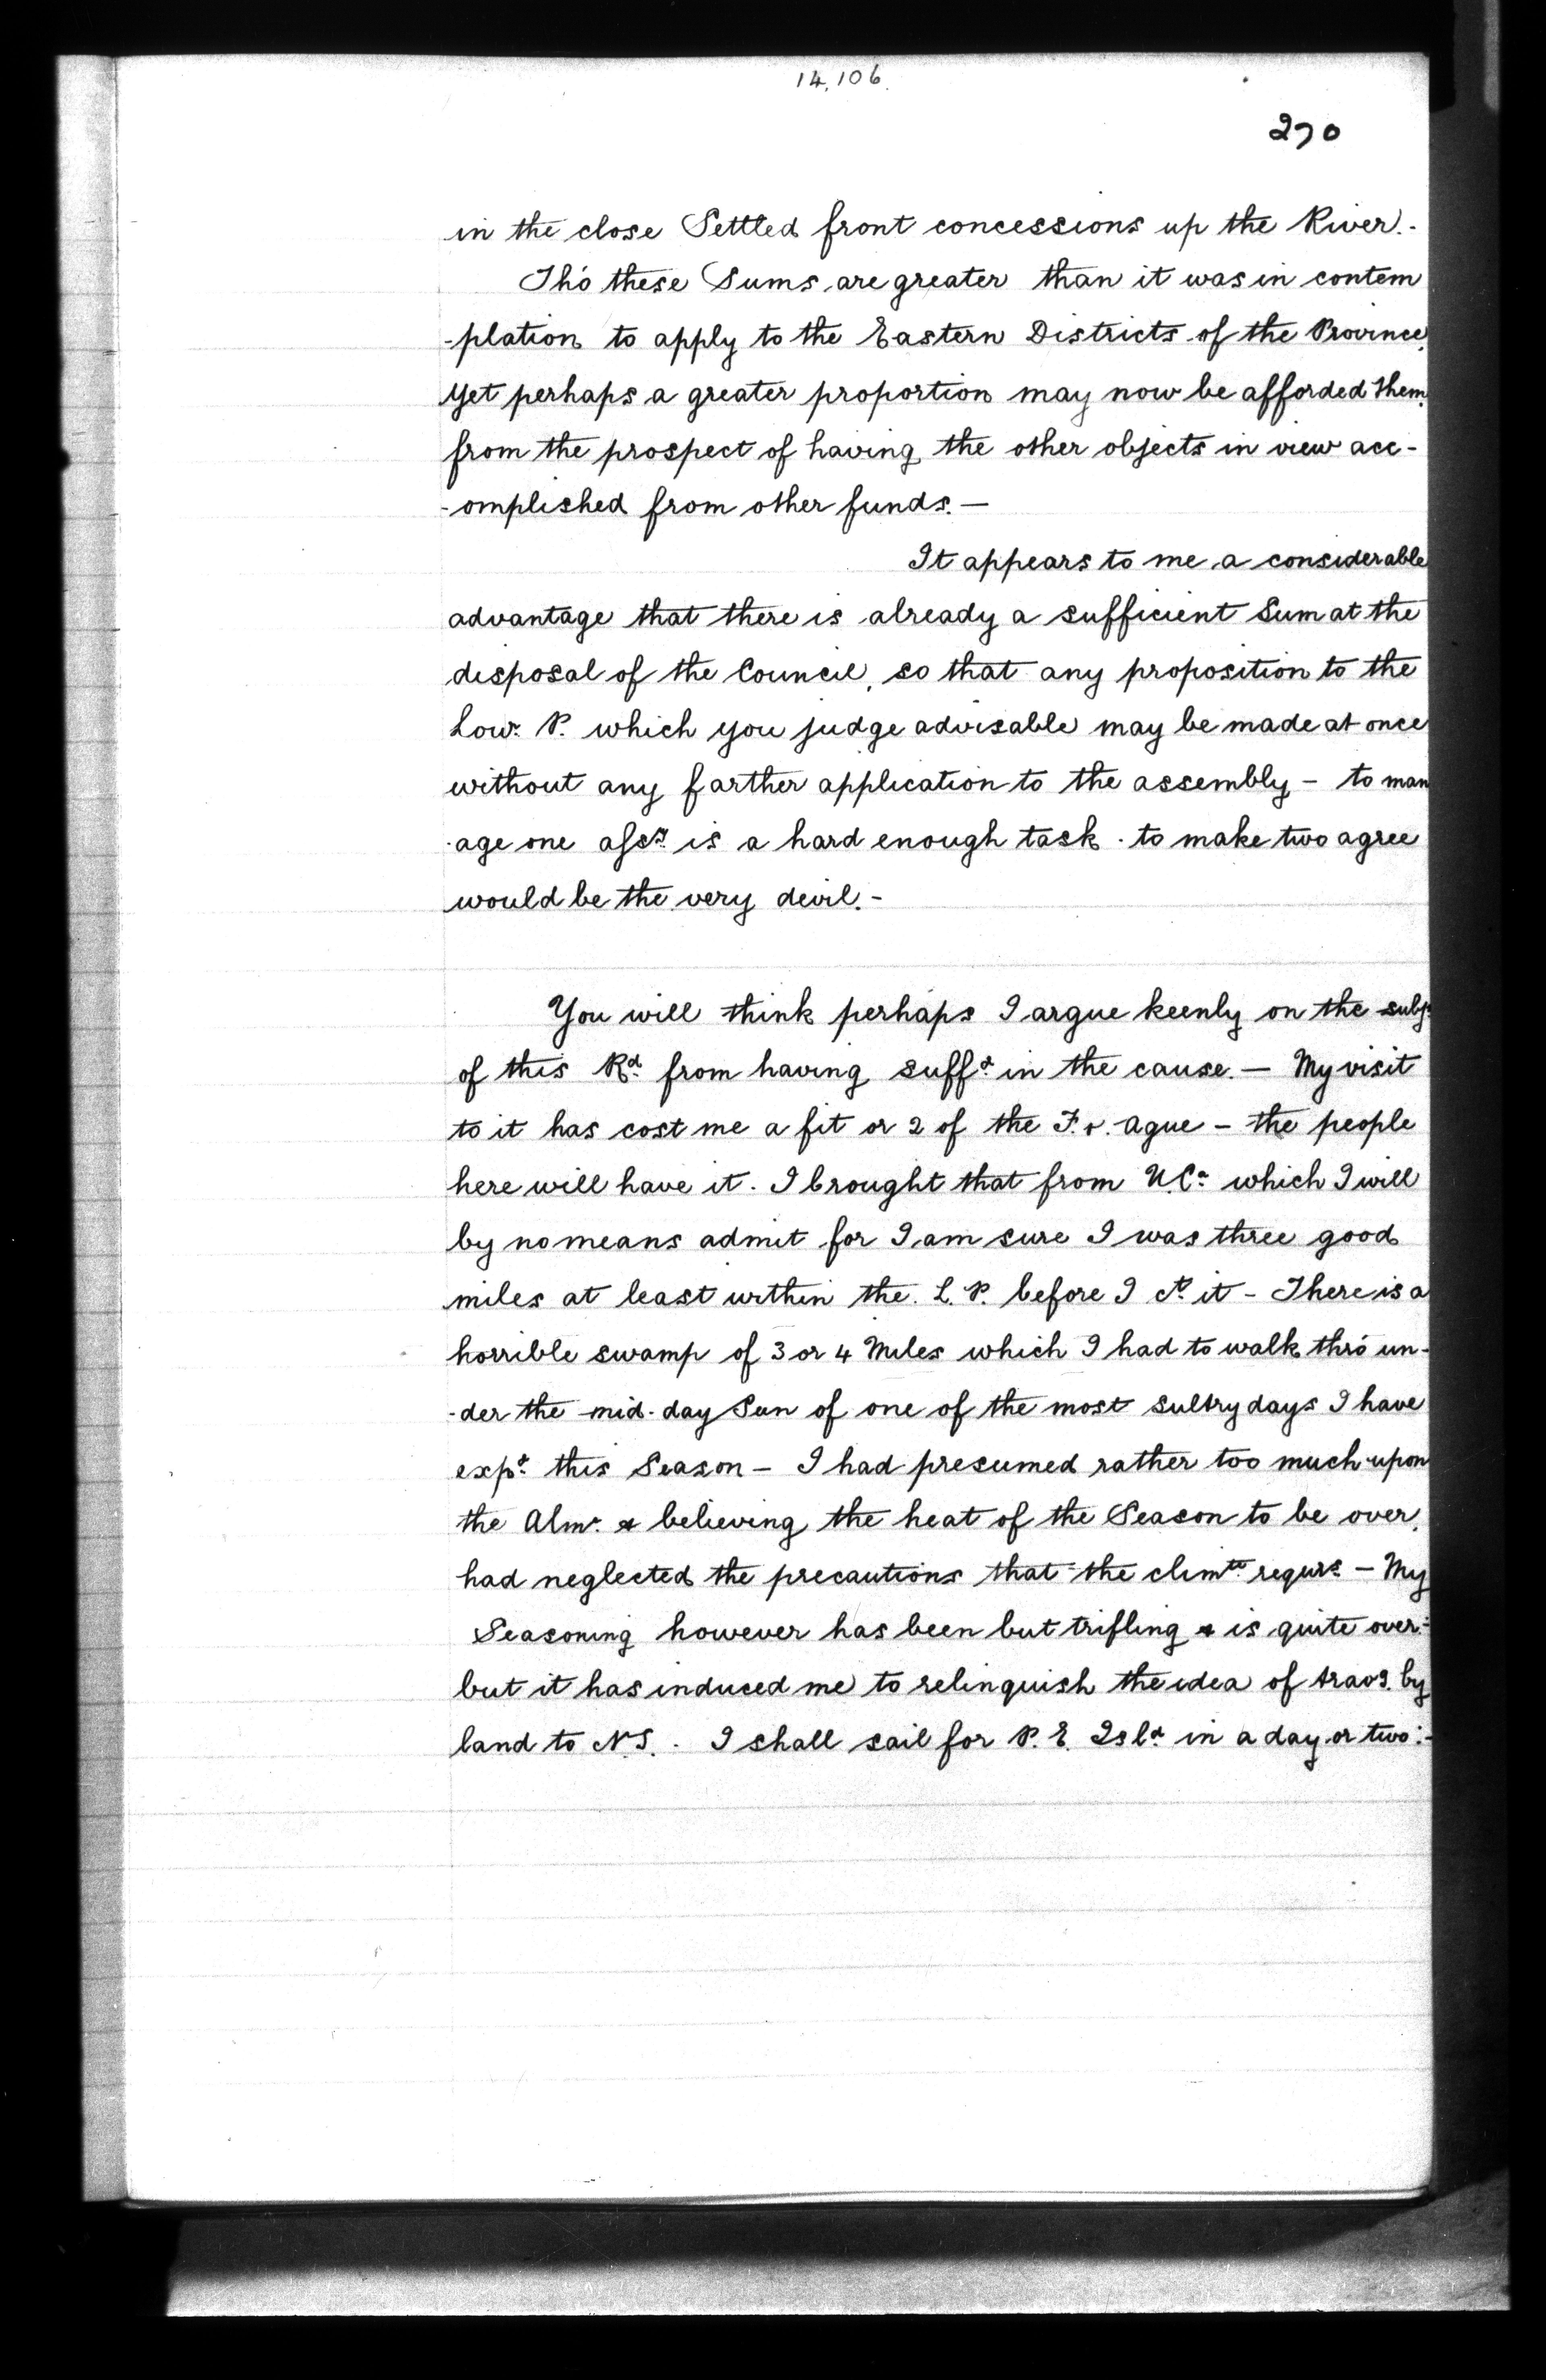 14,106
270
in the close Settled front concessions up the River.-
Tho' these Sums are greater than it was in contem
-plation to apply to the Eastern Districts of the Province,
yet perhaps a greater proportion may now be afforded them,
from the prospect of having the other objects in view acc-
-omplished from other funds.—
It appears to me a considerable
advantage that there is already a sufficient Sum at the
disposal of the Council, so that any proposition to the
Lowr. P. which you judge advisable may be made at once
without any farther application to the assembly - to man
-age one assy. is a hard enough task - to make two agree
would be the very devil.-
You will think perhaps I argue keenly on the subjt.
of this Rd. from having suffd. in the cause. — My visit
to it has cost me a fit or 2 of the F. & Ague - the people
here will have it. I brought that from U.Ca. which I will
by no means admit for I am sure I was three good
miles at least within the L. P. before I ct. it - There is a
horrible swamp of 3 or 4 Miles which I had to walk thro' un-
-der the mid-day Sun of one of the most sultry days I have
expd. this Season - I had presumed rather too much upon
the Almr. & believing the heat of the Season to be over,
had neglected the precautions that the climte. requrs. - My
Seasoning however has been but trifling & is quite over:-
but it has induced me to relinquish the idea of travg. by
land to N.S. - I shall sail for P. E. Isld. in a day or two:-